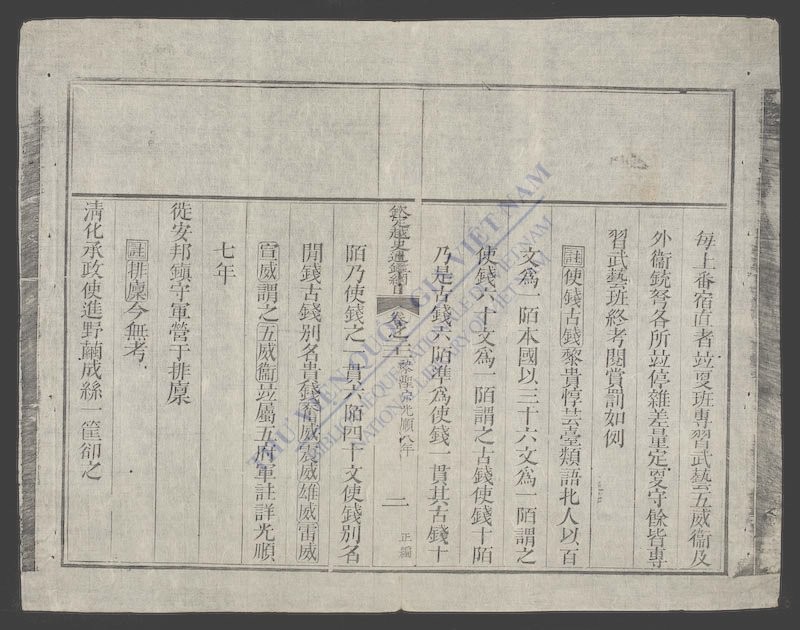 每上番宿直者並更班專習武藝五威衞及
外衞銃弩各所並停雜差量定更守餘皆專
習武藝班終考閱賞罰如例
註使錢古錢黎貴惇芸臺類語北人以百
文爲一陌本國以三十六文爲一陌謂之
使錢六十文爲一陌謂之古錢使錢十陌
乃是古錢六陌準爲使錢一貫其古錢十
欽定越史通鑑綱目 卷之二 黎聖宗光順八年 二 正編
陌乃使錢之一貫六陌四十文使錢別名
閒錢古錢別名貴錢 威震威雄威雷威
宣威謂之五威衞並屬五府軍註詳光順
七年
徙安邦鎮守軍營于排廩
註排廩今無考
清化承政使進野繭成絲一筐卻之
THƯ VIỆN QUỐC GIA VIỆT NAM
BIBLIOTHÈQUE NATIONALE DU VIETNAM
NATIONAL LIBRARY OF VIETNAM